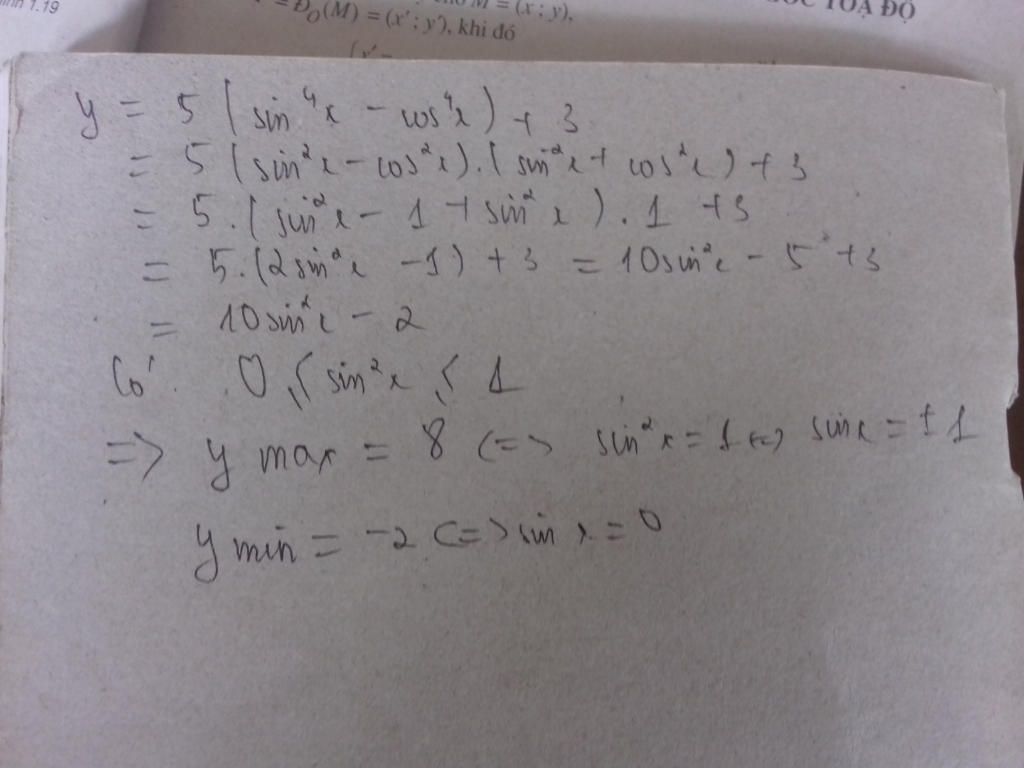 1.19
= Đ₀(M) = (x' ; y'), khi đó
M = (x ; y),
TOẠ ĐỘ
y = 5 (sin⁴x - cos⁴x) + 3
= 5 (sin²x - cos²x).(sin²x + cos²x) + 3
= 5.(sin²x - 1 + sin²x).1 + 3
= 5.(2sin²x - 1) + 3 = 10sin²x - 5 + 3
= 10sin²x - 2
Có 0 ≤ sin²x ≤ 1
=> y max = 8 <=> sin²x = 1 <=> sinx = ±1
y min = -2 <=> sin x = 0